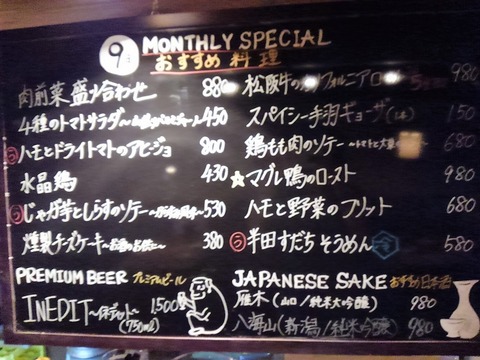 9月 MONTHLY SPECIAL
おすすめ料理
肉前菜盛り合わせ 880
4種のトマトサラダ 450
ハモとドライトマトのアヒージョ 800
水晶鶏 430
じゃが芋としらすのソテー 530
燻製チーズケーキ～お酒のお供に～ 380
松阪牛のカリフォルニアロール 980
スパイシー手羽ギョーザ(1本) 150
鶏もも肉のソテー～トマトと大葉 680
☆マグレ鴨のロースト 980
ハモと野菜のフリット 680
半田すだちそうめん 冷 580
PREMIUM BEER プレミアムビール
INEDIT～イネディット～ 1,500
(750ml)
JAPANESE SAKE おすすめ日本酒
雁木(山口/純米大吟醸) 980
八海山(新潟/純米吟醸) 980